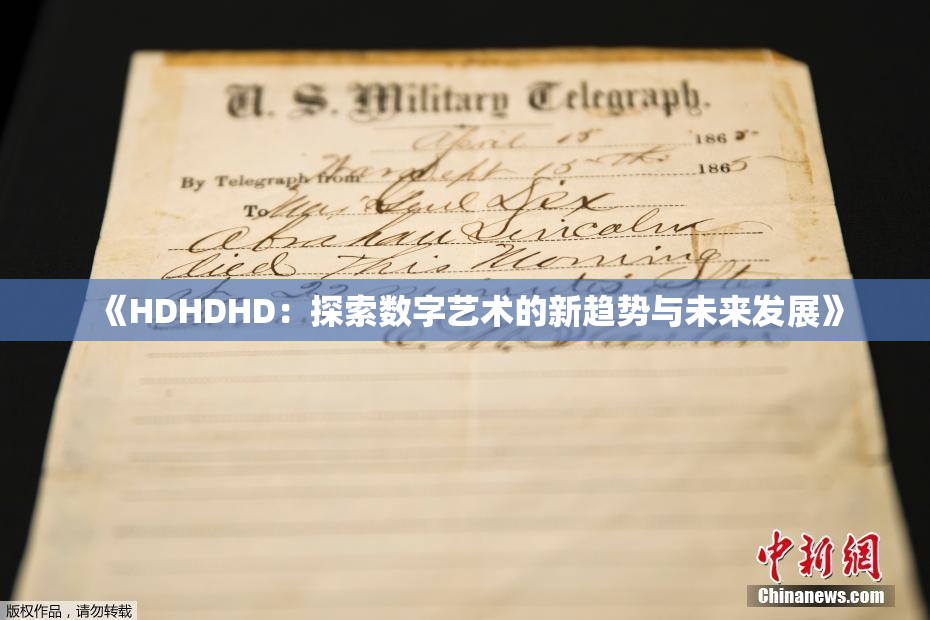 U. S. Military Telegraph.
April 15 1865-
By Telegraph from War Dept 15th. 1865
To Maj Genl Dix
Abraham Lincoln
died This Morning
at 22 minutes after
《HDHDHD：探索数字艺术的新趋势与未来发展》
E. M. Stanton
中新網
Chinanews.com
版权作品，请勿转载